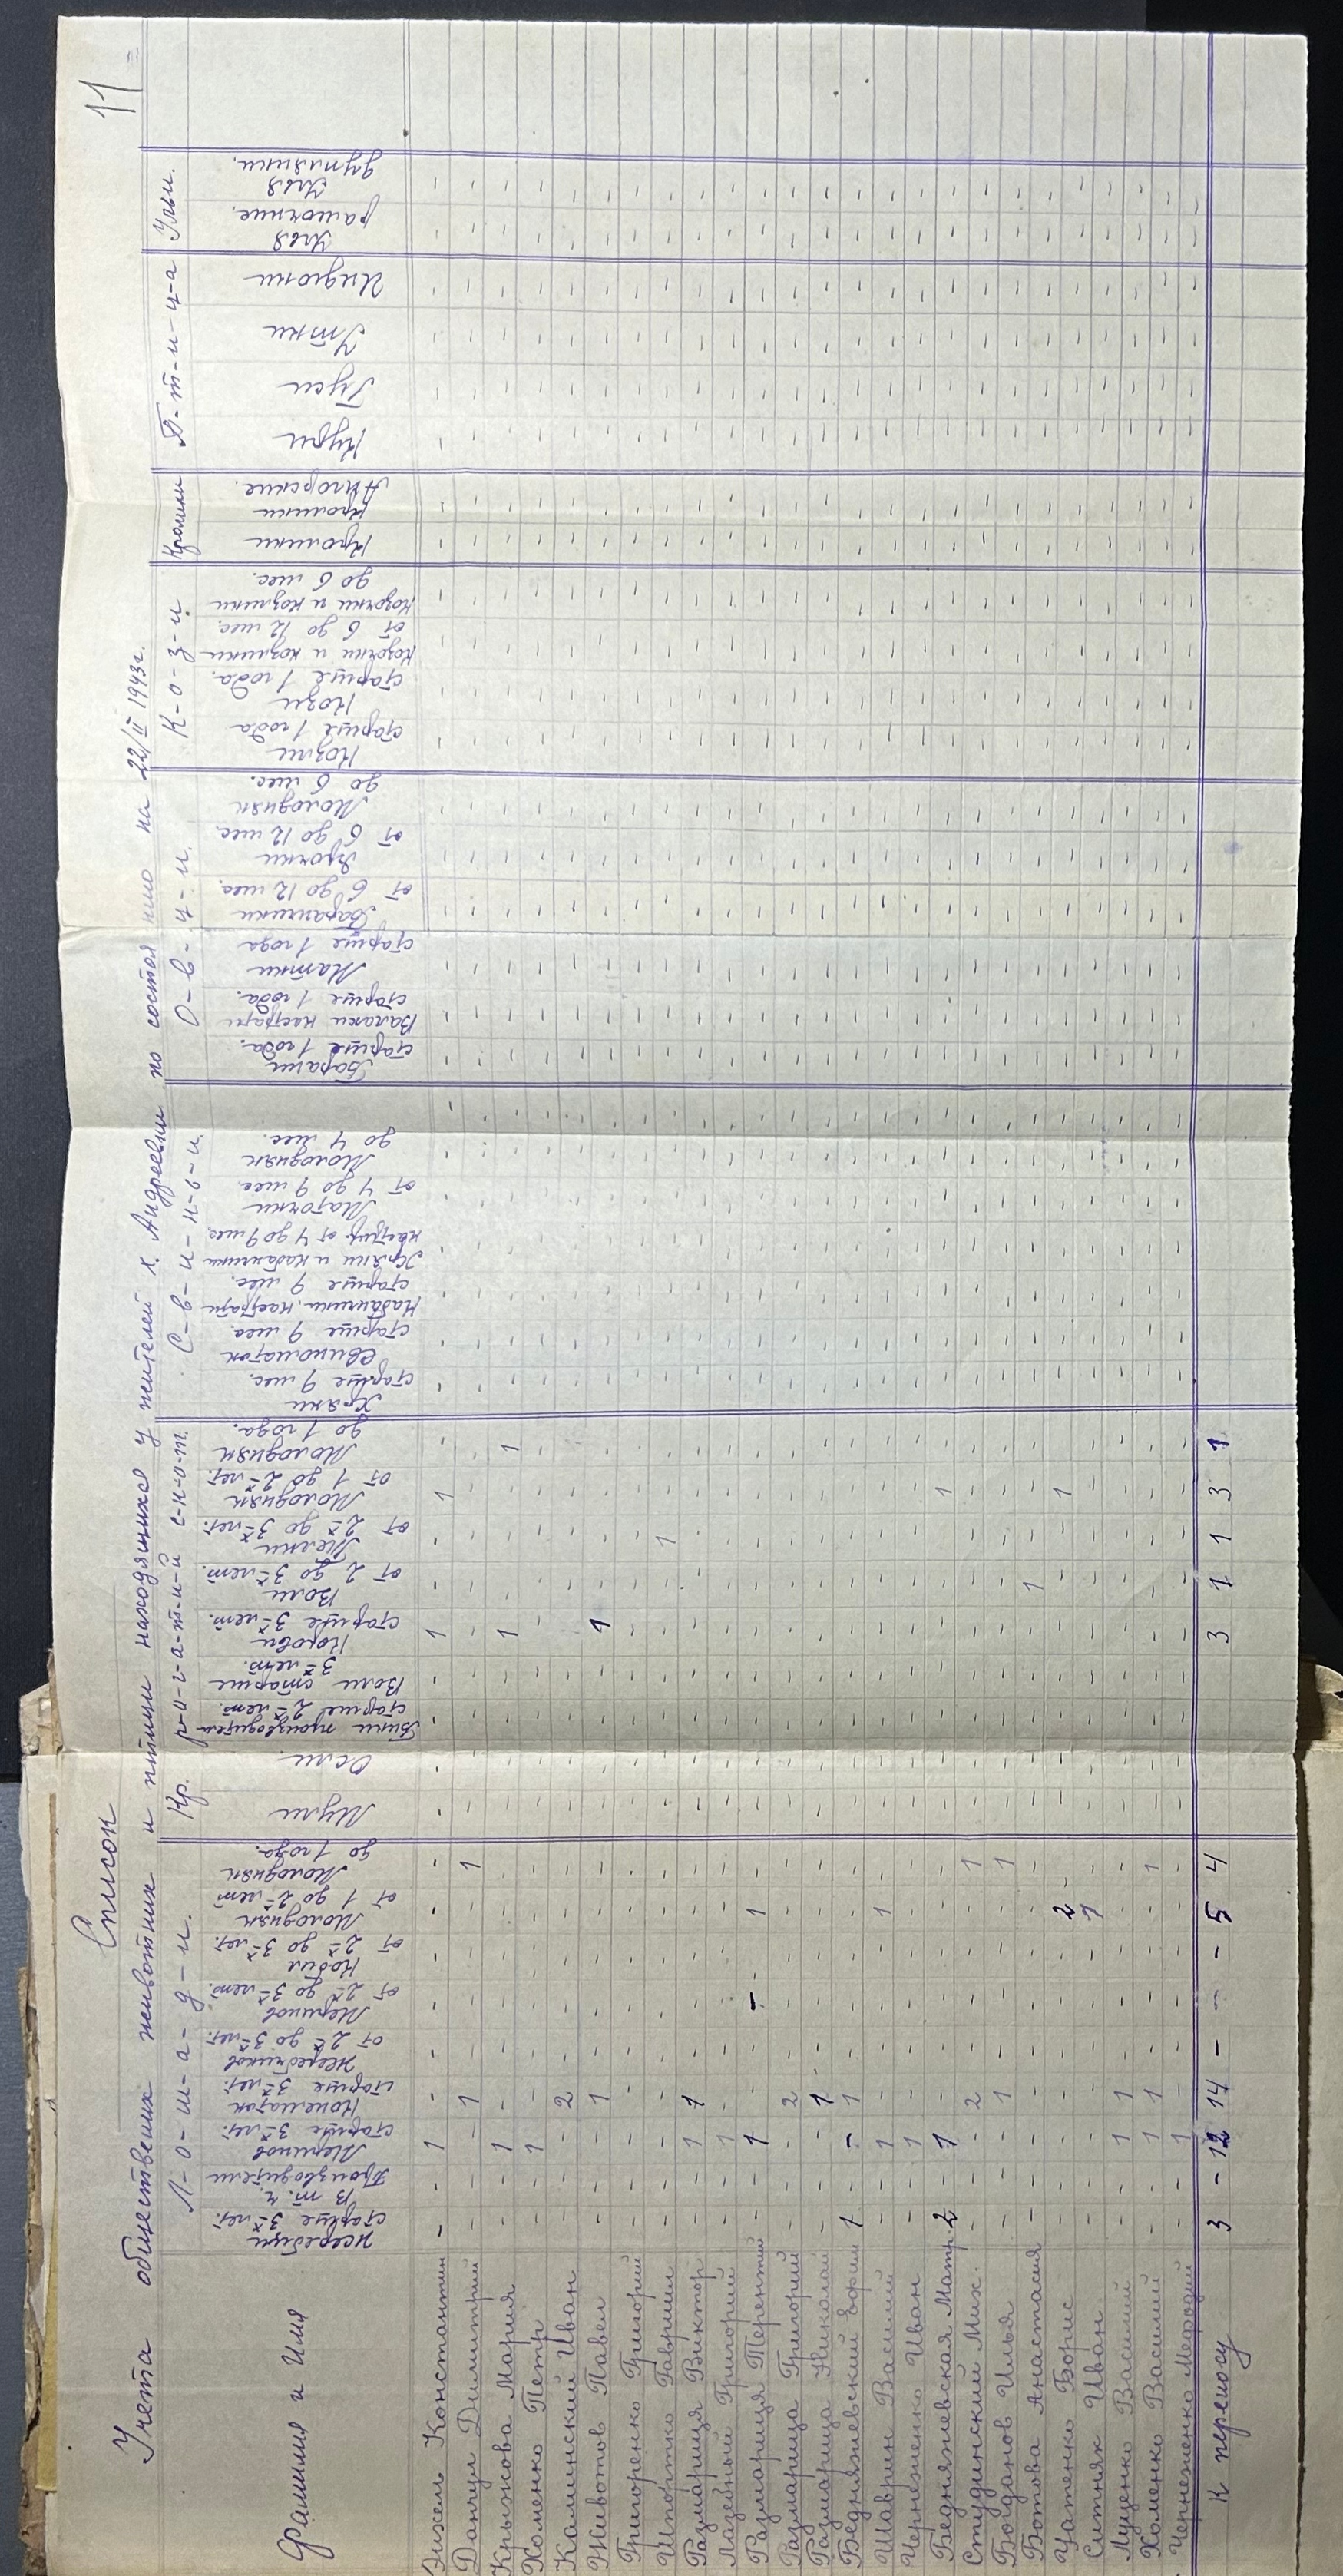 11
Список
Учета общественных животных и птицы находящихся у жителей х. Андреевки по состоянию на 22/II 1943г.
Фамилия и Имя
Л-о-ш-а-д-и.
Кр. р-о-г-а-т-ы-й с-к-о-т.
С-в-и-н-ь-и.
О-в-ц-ы.
К-о-з-ы
Кролики
П-т-и-ц-а
Ульи.
Жеребцы старше 3-х лет.
В т.ч. Производители
Меринов старше 3-х лет.
Конематок старше 3-х лет.
Жеребчиков от 2-х до 3-х лет.
Меринов от 2-х до 3-х лет.
Кобыл от 2-х до 3-х лет.
Молодняк от 1 до 2-х лет
Молодняк до 1 года.
Мулы
Ослы.
Быки производители старше 2-х лет.
Волы старше 3-х лет.
Коровы старше 3-х лет.
Волы от 2 до 3-х лет.
Телки от 2-х до 3-х лет.
Молодняк от 1 до 2-х лет.
Молодняк до 1 года.
Хряки старше 9 мес.
Свиноматок старше 9 мес.
Кабанчики кастраты старше 9 мес.
Хряки и кабанчики кастрир. от 4 до 9 мес.
Маточки от 4 до 9 мес.
Молодняк до 4 мес.
Бараны старше 1 года.
Валахи кастраты старше 1 года.
Матки старше 1 года
Баранчики от 6 до 12 мес.
Ярочки от 6 до 12 мес.
Молодняк до 6 мес.
Козлы старше 1 года
Козы старше 1 года.
Козочки и козлики от 6 до 12 мес.
Козочки и козлики до 6 мес.
Кролики
Кролики Ангорские.
Куры
Гуси
Утки
Индюки
Улья рамочные.
Улья дуплянки.
Энжель Константин - - 1 - - - - - - - - - - 1 - - 1 -
Данчул Димитрий - - - 1 - - - - 1 - - - - - - - - -
Крыжова Мария - - 1 - - - - - - - - - - 1 - - - 1
Хоменко Петр - - 1 - - - - - - - - - - - - - - -
Калинский Иван - - - 2 - - - - - - - - - - - - - -
Животов Павел - - - 1 - - - - - - - - - 1 - - - -
Григоренко Григорий - - - - - - - - - - - - - - - - - -
Шпортко Гавриил - - - - - - - - - - - - - - - 1 - -
Размарица Виктор - - 1 1 - - - - - - - - - - - - - -
Лазейный Григорий - - 1 - - - - - - - - - - - - - - -
Размарица Терентий - - 1 - - - - 1 - - - - - - - - - -
Размарица Григорий - - - 2 - - - - - - - - - - - - - -
Размарица Николай - - - 1 - - - - - - - - - - - - - -
Бедняжевский Ефим 1 - - 1 - - - - - - - - - - - - - -
Шаврин Василий - - 1 - - - - 1 - - - - - - - - - -
Черненко Иван - - 1 - - - - - - - - - - - - - - -
Бедняжевская Матр. 2 - 1 - - - - - - - - - - - - - 1 -
Студинский Мих. - - - 2 - - - - 1 - - - - - - - - -
Богданов Илья - - - 1 - - - - 1 - - - - - - - - -
Ботова Анастасия - - - - - - - - - - - - - - 1 - - -
Уатенко Борис - - - - - - - 2 - - - - - - - - 1 -
Ситняк Иван - - - - - - - 1 - - - - - - - - - -
Луценко Василий - - 1 1 - - - - - - - - - - - - - -
Хоменко Василий - - 1 1 - - - - 1 - - - - - - - - -
Черненженко Мефодий - - 1 - - - - - - - - - - - - - - -
К переносу 3 - 12 14 - - - 5 4 3 1 1 3 1